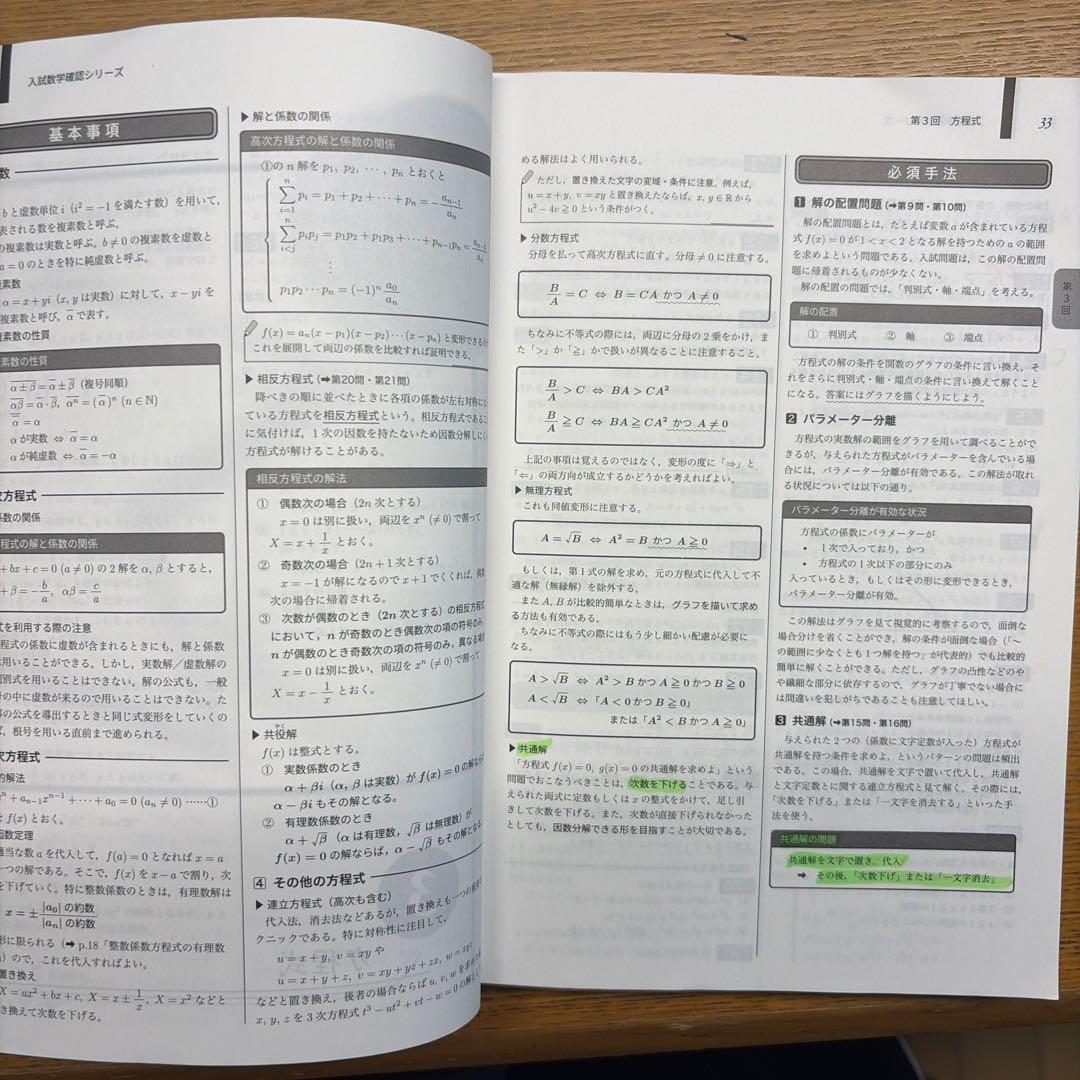 入試数学確認シリーズ
基本事項
数
bと虚数単位 i (i²=−1を満たす数) を用いて,
表される数を複素数と呼ぶ。
の複素数は実数と呼ぶ。b≠0の複素数を虚数と
a=0のときを特に純虚数と呼ぶ。
素数
α=x+yi (x, yは実数) に対して, x−yi を
複素数と呼び, ᾱで表す。
複素数の性質
素数の性質
\overline{α±β}=\overline{α}±\overline{β} (複号同順)
\overline{αβ}=\overline{α}·\overline{β}, \overline{α^n}=(\overline{α})^n (n∈ℕ)
\overline{\overline{α}}=α
αが実数 ⇔ \overline{α}=α
αが純虚数 ⇔ \overline{α}=−α
次方程式
係数の関係
程式の解と係数の関係
+bx+c=0 (a≠0) の2解をα, βとすると,
+β=−b/a, αβ=c/a
式を利用する際の注意
程式の係数に虚数が含まれるときにも, 解と係数
は用いることができる。しかし, 実数解/虚数解の
別式を用いることはできない。解の公式も, 一般
号の中に虚数が来るので用いることはできない。た
解の公式を導出するときと同じ式変形をしていくの
ば, 根号を用いる直前まで進められる。
次方程式
的解法
x^n+a_{n−1}x^{n−1}+⋯+a_0=0 (a_n≠0) ……①
f(x)とおく。
因数定理
適当な数aを代入して, f(a)=0となればx=a
一つの解である。そこで, f(x)をx−aで割り, 次
を下げていく。特に整数係数のときは, 有理数解は
x=±|a_0|の約数/|a_n|の約数
形に限られる (➡p.18「整数係数方程式の有理数
)ので, これを代入すればよい。
置き換え
X=ax²+bx+c, X=x±1/x, X=x²などと
き換えて次数を下げる。
▶解と係数の関係
高次方程式の解と係数の関係
①のn解をp₁, p₂, ⋯, p_nとおくと
∑_{i=1}^{n} p_i=p₁+p₂+⋯+p_n=−a_{n−1}/a_n
∑_{i<j} p_ip_j=p₁p₂+p₁p₃+⋯+p_{n−1}p_n=a_{n−2}/a_n
⋮
p₁p₂⋯p_n=(−1)^n a_0/a_n
f(x)=a_n(x−p₁)(x−p₂)⋯(x−p_n)と変形できるので
これを展開して両辺の係数を比較すれば証明できる。
▶相反方程式 (➡第20問・第21問)
降べきの順に並べたときに各項の係数が左右対称にな
ている方程式を相反方程式という。相反方程式であるこ
に気付けば, 1次の因数を持たないため因数分解しにくい
方程式が解けることがある。
相反方程式の解法
① 偶数次の場合 (2n次とする)
x=0は別に扱い, 両辺をx^n (≠0)で割って
X=x+1/xとおく。
② 奇数次の場合 (2n+1次とする)
x=−1が解になるのでx+1でくくれば, 偶数
次の場合に帰着される。
③ 次数が偶数のとき (2n次とする) の相反方程式
において, nが奇数のとき偶数次の項の符号のみ,
nが偶数のとき奇数次の項の符号のみ, 異なる場合
x=0は別に扱い, 両辺をx^n (≠0)で割って
X=x−1/xとおく。
▶共役解
きょうやく
f(x)は整式とする。
① 実数係数のとき
α+βi (α, βは実数) がf(x)=0の解なら
α−βiもその解となる。
② 有理数係数のとき
α+√β (αは有理数, √βは無理数) が
f(x)=0の解ならば, α−√βもその解となる。
4 その他の方程式
▶連立方程式 (高次も含む)
代入法, 消法法などあるが, 置き換えも一つの重要な
クニックである。特に対称性に注目して,
u=x+y, v=xyや
u=x+y+z, v=xy+yz+zx, w=xyz
などと置き換え, 後者の場合ならu, v, wを求めた
x, y, zを3次方程式t³−ut²+vt−w=0の解として
第3回 方程式
33
める解法はよく用いられる。
ただし, 置き換えた文字の変域・条件に注意。例えば,
u=x+y, v=xyと置き換えたならば, x, y∈ℝから
u²−4v≧0という条件がつく。
▶分数方程式
分母を払って高次方程式に直す。分母≠0に注意する。
B/A=C ⇔ B=CA かつ A≠0
ちなみに不等式の際には, 両辺に分母の2乗をかけ, ま
た「>」か「≧」かで扱いが異なることに注意すること。
B/A>C ⇔ BA>CA²
B/A≧C ⇔ BA≧CA² かつ A≠0
上記の事項は覚えるのではなく, 変形の度に「⇒」と
「⇐」の両方向が成立するかどうかを考えればよい。
▶無理方程式
これも同値変形に注意する。
A=√B ⇔ A²=B かつ A≧0
もしくは, 第1式の解を求め, 元の方程式に代入して不
適な解 (無縁解) を除外する。
またA, Bが比較的簡単なときは, グラフを描いて求め
る方法も有効である。
ちなみに不等式の際にはもう少し細かい配慮が必要に
なる。
A>√B ⇔ A²>B かつ A≧0 かつ B≧0
A<√B ⇔ 「A<0 かつ B≧0」
または「A²<B かつ A≧0」
▶共通解
「方程式f(x)=0, g(x)=0の共通解を求めよ」という
問題でおこなうべきことは, 次数を下げることである。与
えられた両式に定数もしくはxの整式をかけて, 足し引
きして次数を下げる。また, 次数が直接下げられなかった
としても, 因数分解できる形を目指すことが大切である。
必須手法
1 解の配置問題 (➡第9問・第10問)
解の配置問題とは, たとえば変数aが含まれている方程
式f(x)=0が1<x<2となる解を持つためのaの範囲
を求めよという問題である。入試問題は, この解の配置問
題に帰着されるものが少なくない。
解の配置の問題では,「判別式・軸・端点」を考える。
解の配置
① 判別式 ② 軸 ③ 端点
方程式の解の条件を関数のグラフの条件に言い換え, そ
れをさらに判別式・軸・端点の条件に言い換えて解くこと
になる。答案にはグラフを描くようにしよう。
2 パラメーター分離
方程式の実数解の範囲をグラフを用いて調べることがで
きるが, 与えられた方程式がパラメーターを含んでいる場
合には, パラメーター分離が有効である。この解法が取れ
る状況については以下の通り。
パラメーター分離が有効な状況
方程式の係数にパラメーターが
• 1次で入っており, かつ
• 方程式の1次以下の部分にのみ
入っているとき, もしくはその形に変形できるとき,
パラメーター分離が有効。
この解法はグラフを見て視覚的に考察するので, 面倒な
場合分けを省くことができ, 解の条件が面倒な場合 (「〜
の範囲に少なくとも1つ解を持つ」が代表的) でも比較的
簡単に解くことができる。ただし, グラフの凸性などのや
や繊細な部分に依存するので, グラフが丁寧でない場合に
は間違いを犯しがちであることも注意してほしい。
3 共通解 (➡第15問・第16問)
与えられた2つの (係数に文字定数が入った) 方程式が
共通解を持つ条件を求めよ, というパターンの問題は頻出
である。この場合, 共通解を文字で置いて代入し, 共通解
と文字定数とに関する連立方程式と見て解く。その際には,
「次数を下げる」または「一文字を消去する」といった手
法を使う。
共通解の問題
共通解を文字で置き, 代入
➡ その後,「次数下げ」または「一文字消去」
第3回